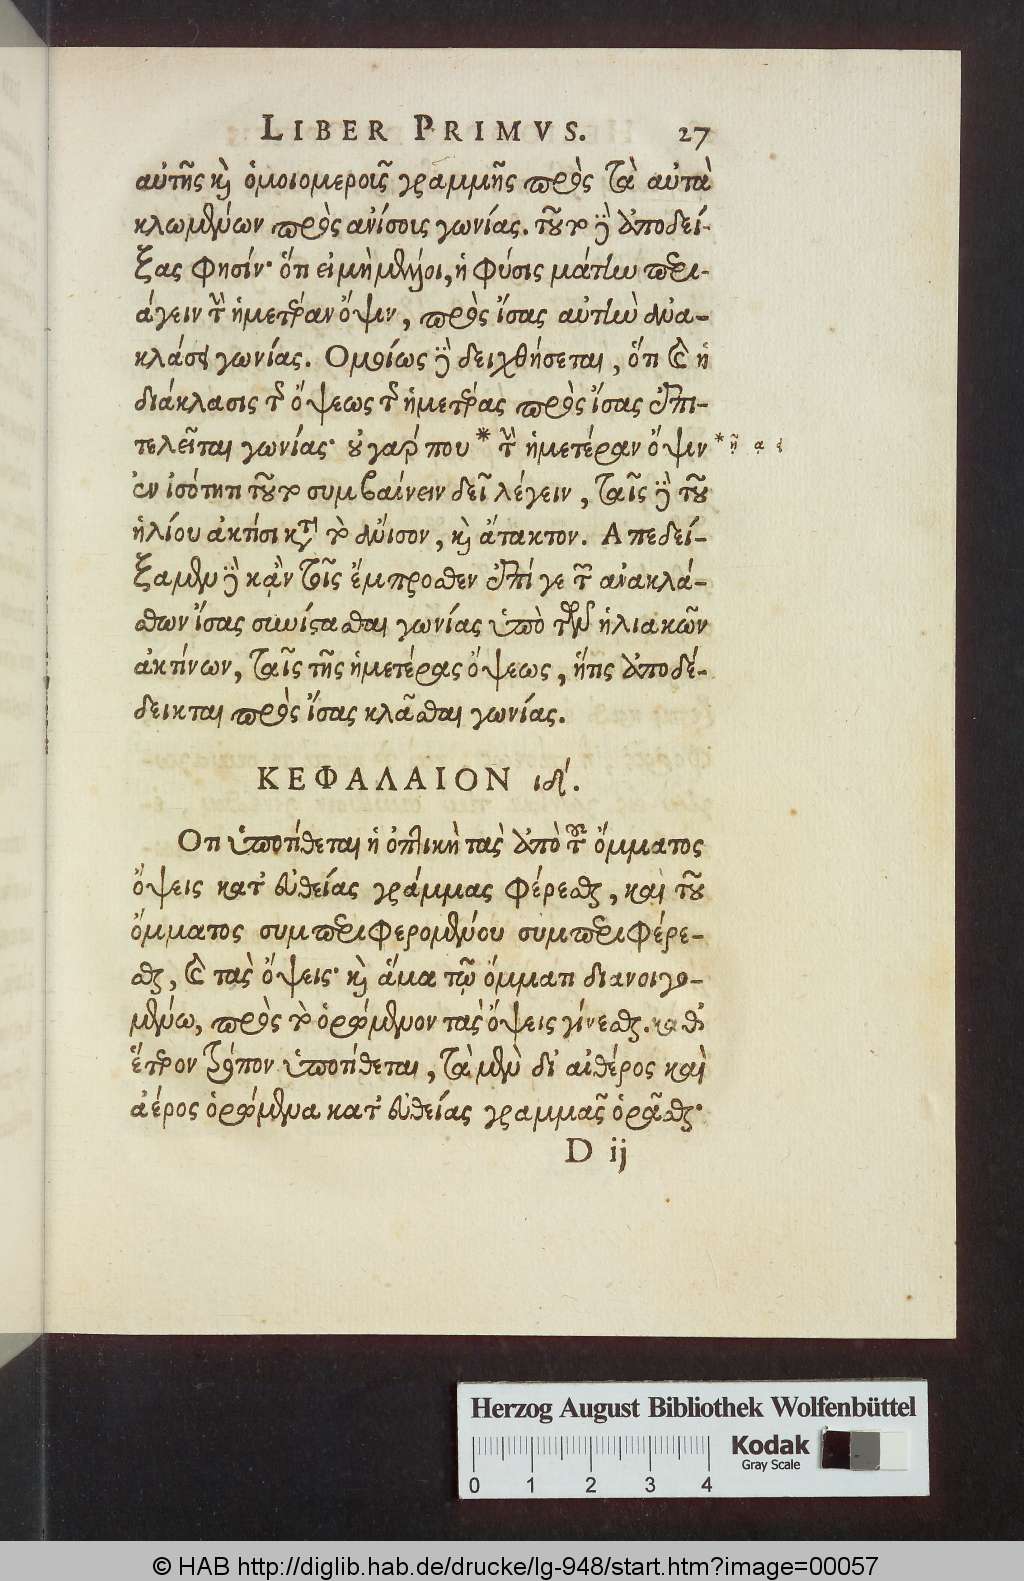 LIBER PRIMVS. 27
αὐτῆς καὶ ὁμοιομεροῖς γραμμῆς πρὸς τὰ αὐτὰ
κλωμένων πρὸς ἀνίσοις γωνίας. τοῦτο γὰρ ἀποδεί-
ξας φησίν· ὅτι εἰ μὴ μέλλοι, ἡ φύσις μάτην περι-
άγειν τὴν ἡμετέραν ὄψιν, πρὸς ἴσας αὐτὴν ἀνα-
κλάσει γωνίας. Ὁμοίως γὰρ δειχθήσεται, ὅτι καὶ ἡ
διάκλασις τῆς ὄψεως τῆς ἡμετέρας πρὸς ἴσας ἐπι-
τελεῖται γωνίας· οὐ γάρ που * τὴν ἡμετέραν ὄψιν
ἐν ἰσότητι τοῦτο συμβαίνειν δεῖ λέγειν, ταῖς γὰρ τοῦ
ἡλίου ἀκτῖσι κατὰ τὸ ἄνισον, καὶ ἄτακτον. Ἀπεδεί-
ξαμεν γὰρ κἀν τοῖς ἔμπροσθεν ἐπί γε τῶν ἀνακλά-
σθων ἴσας συνίστασθαι γωνίας ὑπὸ τῶν ἡλιακῶν
ἀκτίνων, ταῖς τῆς ἡμετέρας ὄψεως, ἥτις ἀποδέ-
δεικται πρὸς ἴσας κλᾶσθαι γωνίας.
ΚΕΦΑΛΑΙΟΝ ιδ΄.
Ὅτι ὑποτίθεται ἡ ὀπτικὴ τὰς ἀπὸ τοῦ ὄμματος
ὄψεις κατ' εὐθείας γράμμας φέρεσθαι, καὶ τοῦ
ὄμματος συμπεριφερομένου συμπεριφέρε-
σθαι, καὶ τὰς ὄψεις· καὶ ἅμα τῷ ὄμματι διανοιγο-
μένω, πρὸς τὸ ὁρώμενον τὰς ὄψεις γίνεσθαι. καθ'
ἕτερον τρόπον ὑποτίθεται, τὰ μὲν δι' αἰθέρος καὶ
ἀέρος ὁρώμενα κατ' εὐθείας γραμμὰς ὁρᾶσθαι·
D ij
Herzog August Bibliothek Wolfenbüttel
Kodak
Gray Scale
0 1 2 3 4
© HAB http://diglib.hab.de/drucke/lg-948/start.htm?image=00057